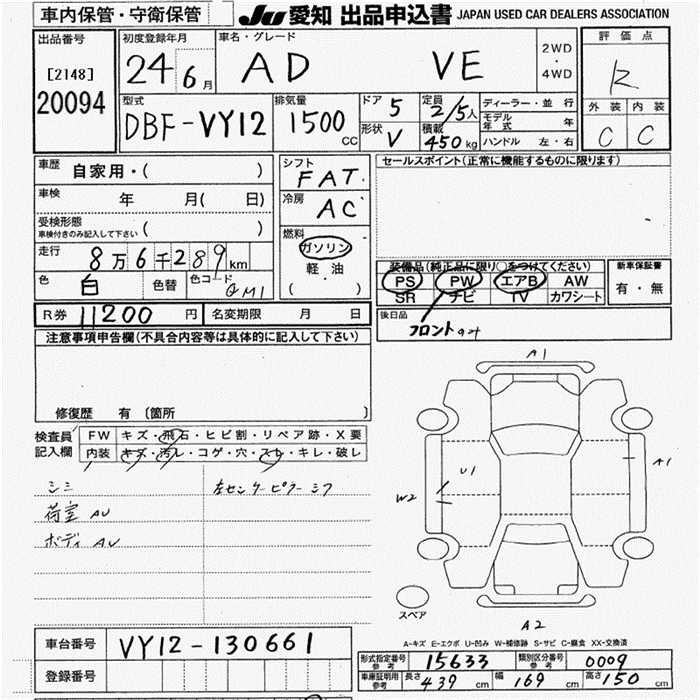 車内保管・守衛保管
JU 愛知 出品申込書 JAPAN USED CAR DEALERS ASSOCIATION
出品番号
[2148]
20094
初度登録年月
24 6月
車名・グレード
AD VE
2WD
・
4WD
評価点
R
外装 内装
C C
型式
DBF-VY12
排気量
1500 CC
ドア 5
形状 V
定員 2/5人
積載 450kg
ディーラー・並行
モデル年式 年
ハンドル 左・右
車歴 自家用・( )
車検 年 月( 日)
受検形態
車検付きのみ記入して下さい ( )
走行 8万6千289km
色 白 色替 色コード QM1
シフト FAT
冷房 AC
燃料
ガソリン
軽・油
( )
セールスポイント(正常に機能するものに限ります)
装備品(純正品に限り○をつけてください)
PS PW エアB AW
SR ナビ TV カワシート
新車保証書
有・無
フロントのみ
後日品
R券 11200円 名変期限 月 日
注意事項申告欄(不具合内容等は具体的に記入して下さい)
修復歴 有 〔箇所 〕
検査員記入欄
FW キズ・飛石・ヒビ割・リペア跡・X要
内装 キズ・汚レ・コゲ・穴・スレ・キレ・破レ
シミ
荷室 AU
ボディ AU
左センターピラーシワ
A1
A1
U1
W2
A2
スペア
A-キズ E-エクボ U-凹み W-補修跡 S-サビ C-腐食 XX-交換済
車台番号 VY12-130661
登録番号
形式指定番号 参考 15633 類別区分番号 参考 0009
車庫証明用 参考 長さ 439 cm 幅 169 cm 高さ 150 cm